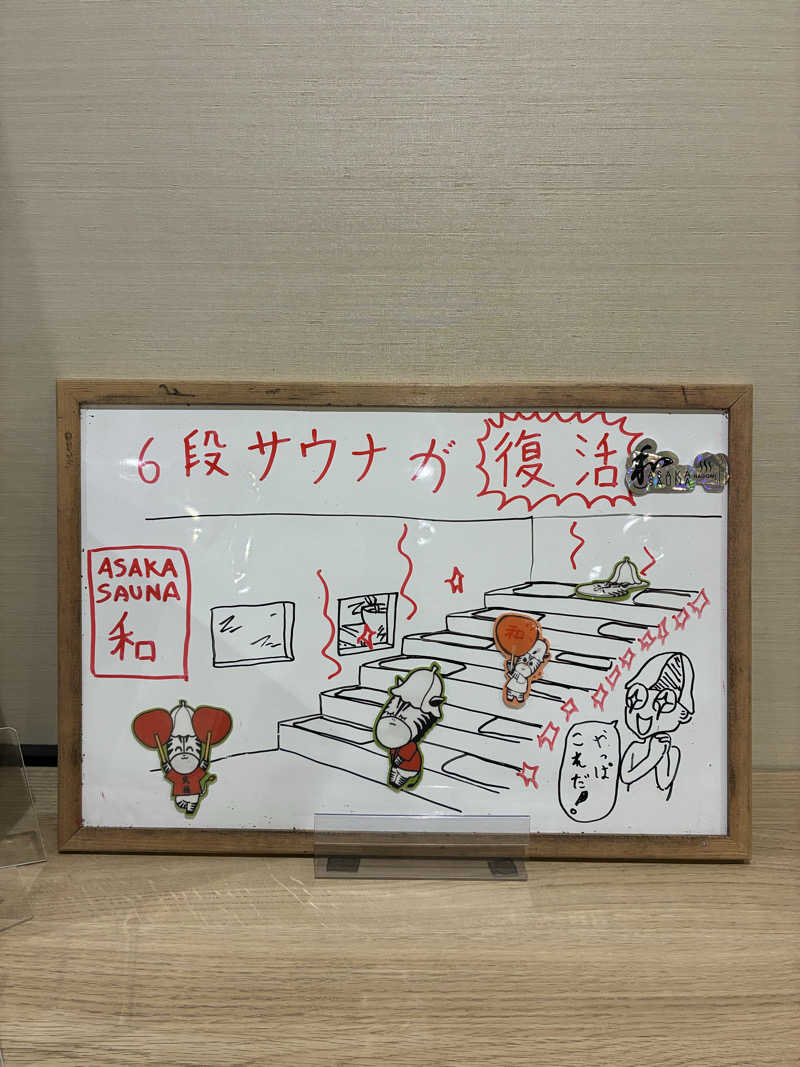 6段サウナが復活
和
ASAKA
SAUNA
NAGOMI
ASAKA
SAUNA
和
和
やっぱ
これだ!